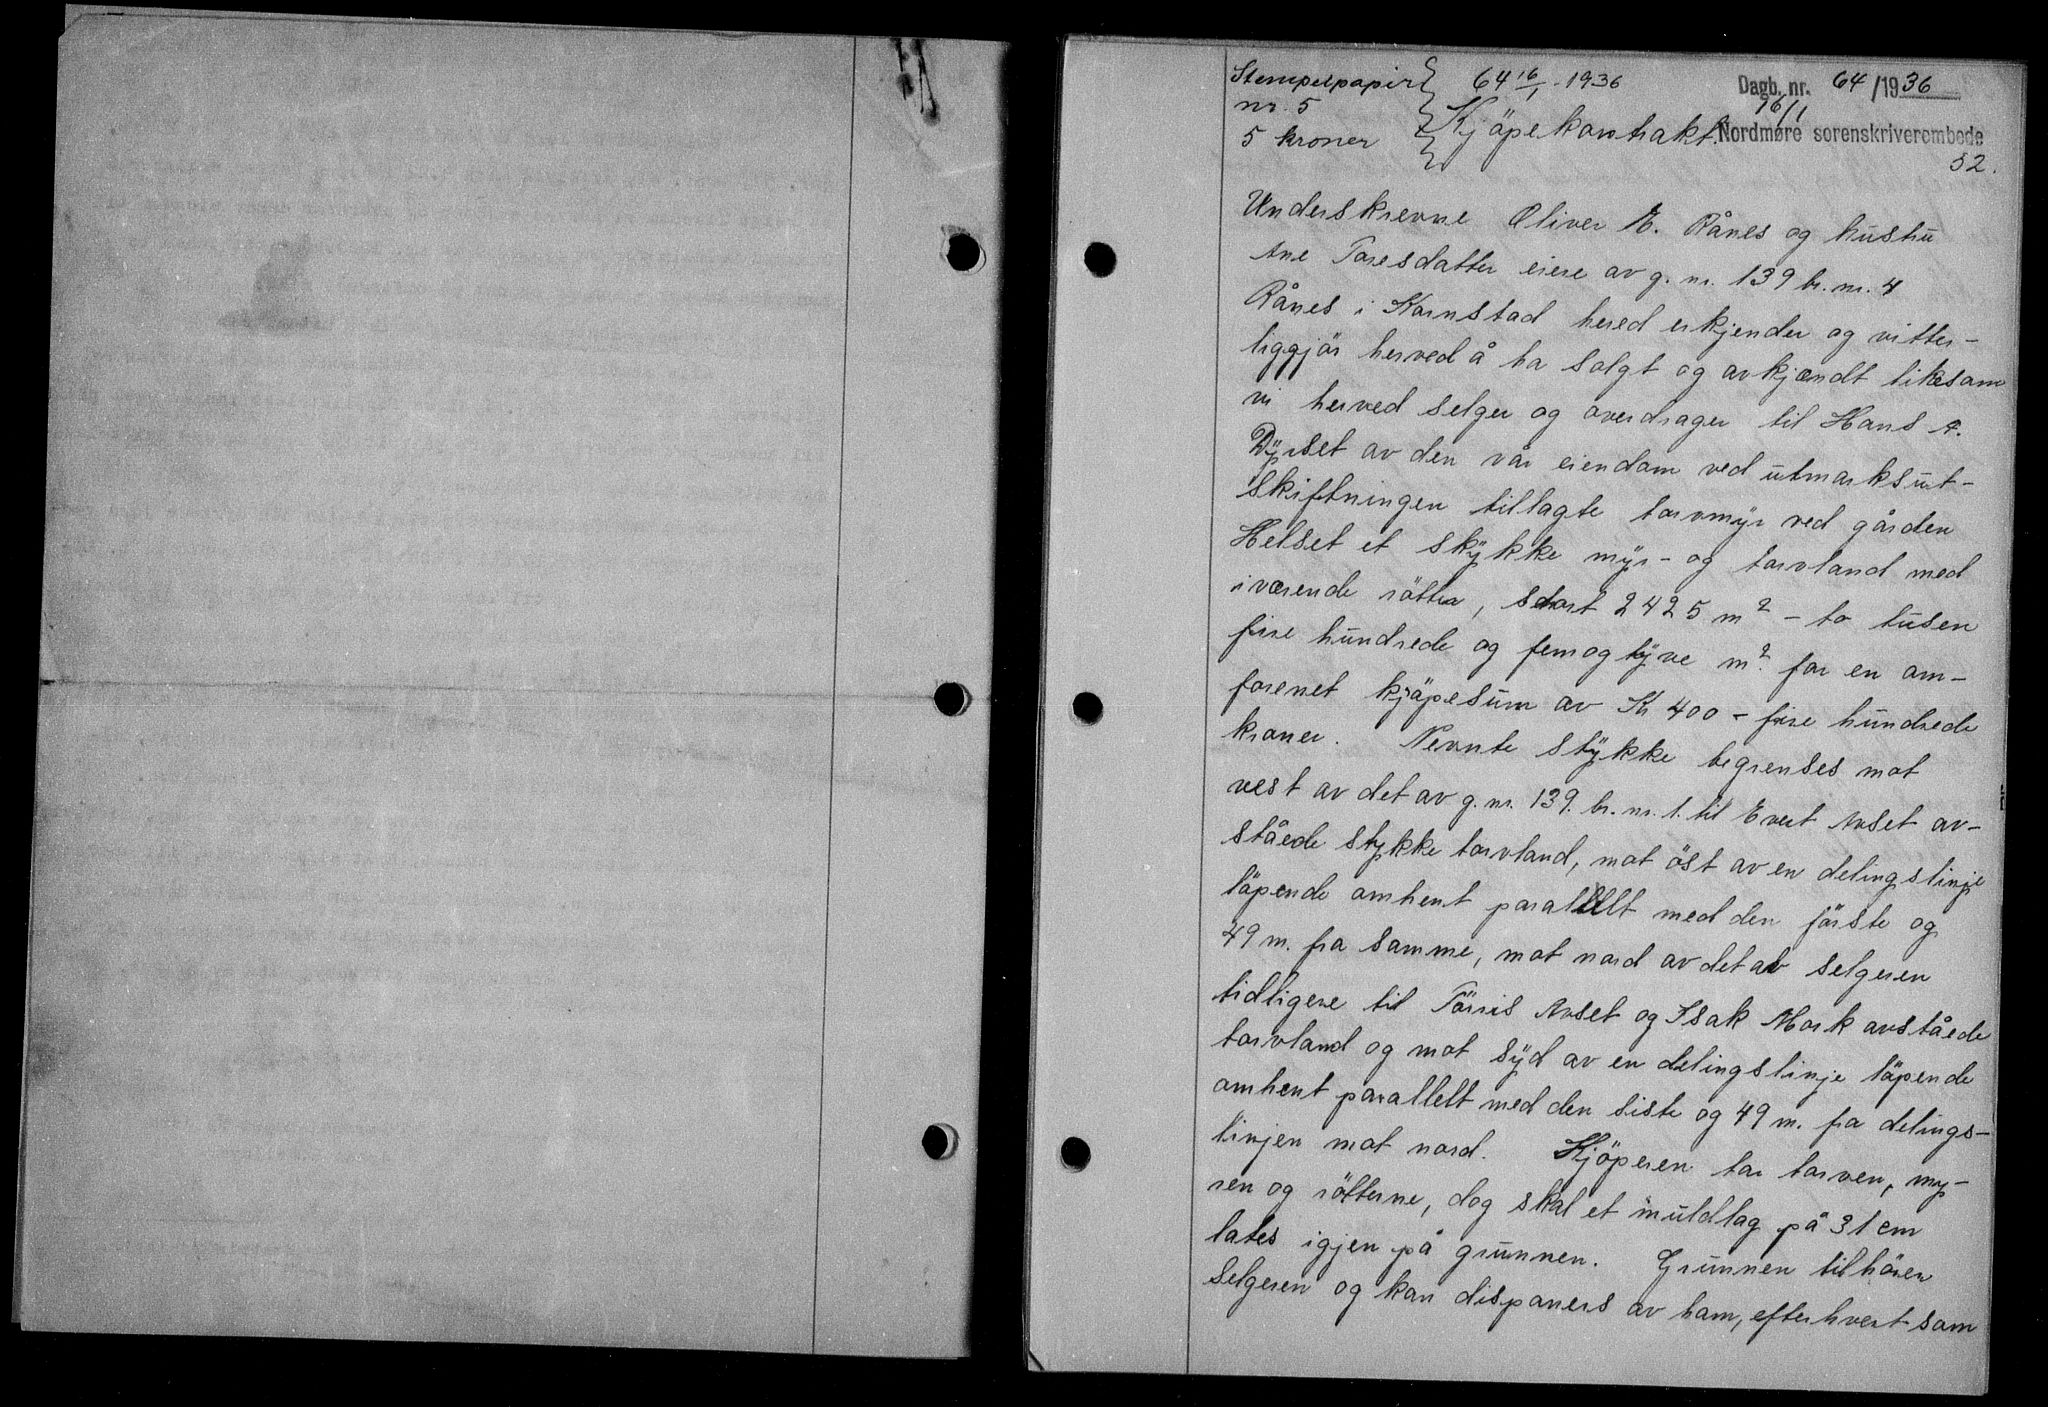 Stempelpapir } 64 16/1 - 1936 Dagb. nr. 64/1936
nr. 5 16/1
5 kroner } Kjöpekontrakt. Nordmøre sorenskriverembede
52.
Underskrevne Oliver E. Rånes og hustru
Ane Toresdatter eiere av g. nr. 139 br. nr. 4
Rånes i Kornstad hered erkjender og vitter-
liggjör herved å ha solgt og avkjændt likesom
vi herved selger og overdrager til Hans A.
Dyrset av den vår eiendom ved utmarksut-
skiftningen tillagte torvmyr ved gården
Helset et stykke myr- og torvland med
iværende rötter, stort 2425 m² - to tusen
fire hundrede og femogtyve m² for en om-
forenet kjöpesum av Kr 400 - fire hundrede
kroner. Nevnte stykke begrenses mot
vest av det av g. nr. 139. br. nr. 1. til Evert Avset av-
ståede stykke torvland, mot öst av en delingslinje
löpende omhent parallelt med den förste og
49 m. fra samme, mot nord av det av selgeren
tidligere til Törris Avset og Isak Mork avståede
torvland og mot syd av en delingslinje löpende
omhent parallelt med den siste og 49 m. fra delings-
linjen mot nord. Kjöperen tar torven, my-
ren og rötterne, dog skal et muldlag på 31 cm
lates igjen på grunnen. Grunnen tilhörer
Selgeren og kan disponers av ham, efterhvert som